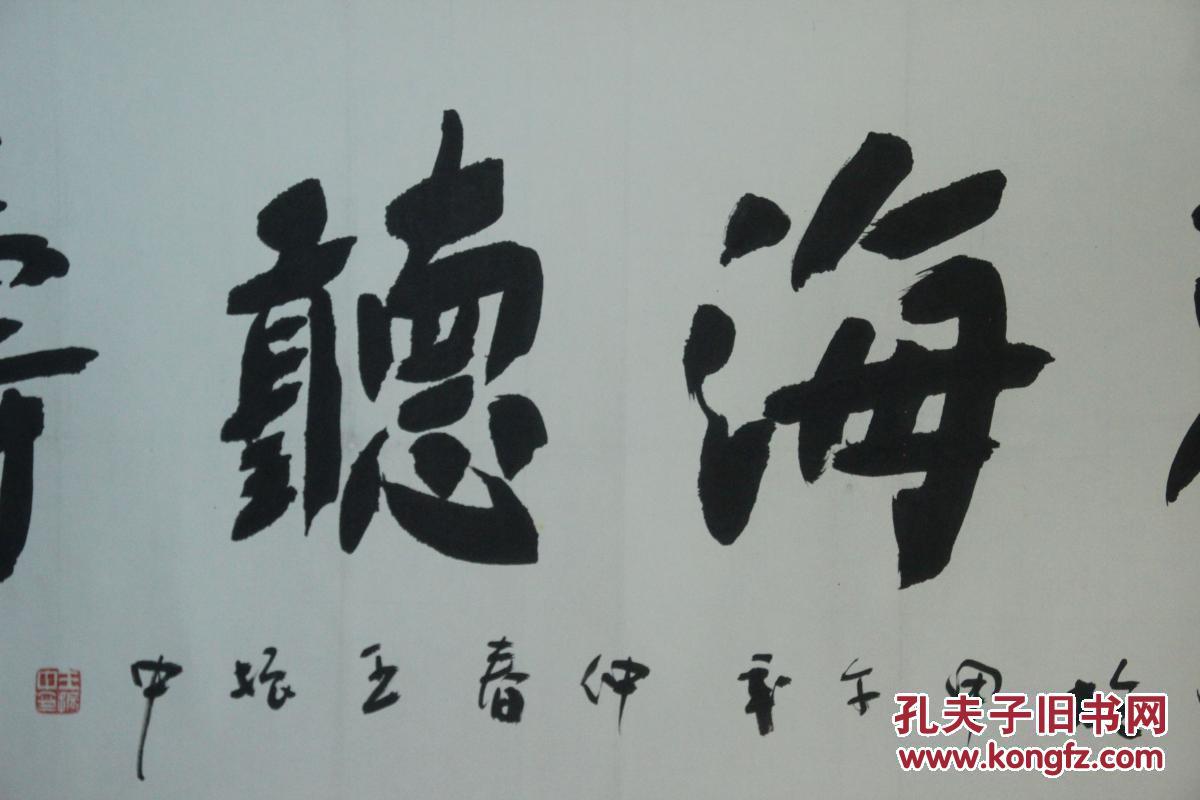 海聽濤
於甲午年仲春王振中
孔夫子旧书网
www.kongfz.com